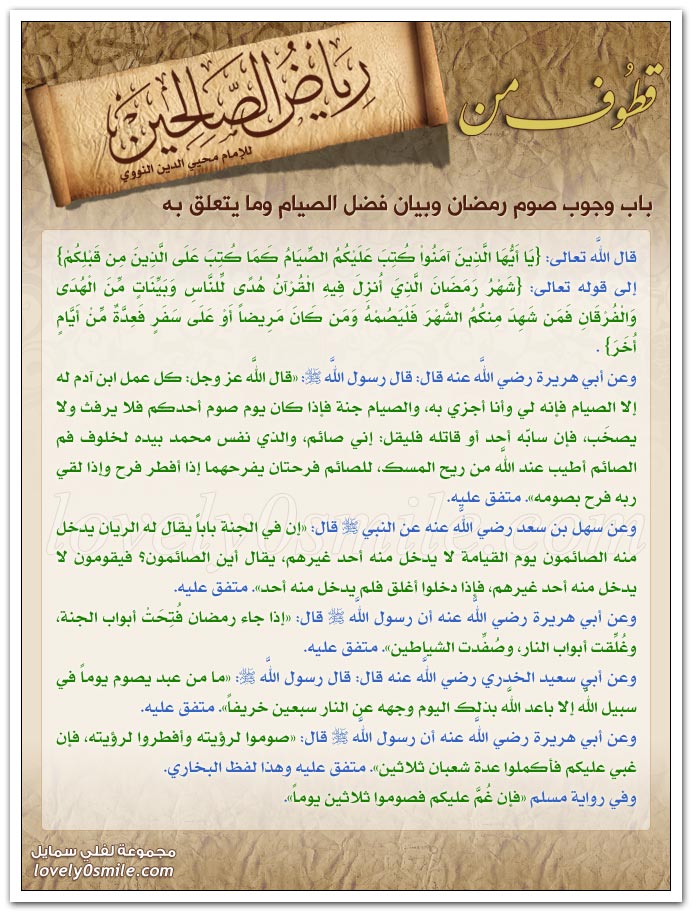 قطوف من
رياض الصالحين
للإمام محيي الدين النووي
باب وجوب صوم رمضان وبيان فضل الصيام وما يتعلق به
قال اللَّه تعالى: {يَا أَيُّهَا الَّذِينَ آمَنُواْ كُتِبَ عَلَيْكُمُ الصِّيَامُ كَمَا كُتِبَ عَلَى الَّذِينَ مِن قَبْلِكُمْ}
إلى قوله تعالى: {شَهْرُ رَمَضَانَ الَّذِيَ أُنزِلَ فِيهِ الْقُرْآنُ هُدًى لِّلنَّاسِ وَبَيِّنَاتٍ مِّنَ الْهُدَى
وَالْفُرْقَانِ فَمَن شَهِدَ مِنكُمُ الشَّهْرَ فَلْيَصُمْهُ وَمَن كَانَ مَرِيضاً أَوْ عَلَى سَفَرٍ فَعِدَّةٌ مِّنْ أَيَّامٍ
أُخَرَ} .
وعن أبي هريرة رضي اللَّه عنه قال: قال رسول اللَّه ﷺ: «قال اللَّه عز وجل: كل عمل ابن آدم له
إلا الصيام فإنه لي وأنا أجزي به، والصيام جنة فإذا كان يوم صوم أحدكم فلا يرفث ولا
يصخَب، فإن سابّه أحد أو قاتله فليقل: إني صائم، والذي نفس محمد بيده لخلوف فم
الصائم أطيب عند اللَّه من ريح المسك، للصائم فرحتان يفرحهما إذا أفطر فرح وإذا لقي
ربه فرح بصومه». متفق عليه.
وعن سهل بن سعد رضي اللَّه عنه عن النبي ﷺ قال: «إن في الجنة باباً يقال له الريان يدخل
منه الصائمون يوم القيامة لا يدخل منه أحد غيرهم، يقال أين الصائمون؟ فيقومون لا
يدخل منه أحد غيرهم، فإذا دخلوا أغلق فلم يدخل منه أحد». متفق عليه.
وعن أبي هريرة رضي اللَّه عنه أن رسول اللَّه ﷺ قال: «إذا جاء رمضان فُتِحَتْ أبواب الجنة،
وغُلِّقت أبواب النار، وصُفِّدت الشياطين». متفق عليه.
وعن أبي سعيد الخدري رضي اللَّه عنه قال: قال رسول اللَّه ﷺ: «ما من عبد يصوم يوماً في
سبيل اللَّه إلا باعد اللَّه بذلك اليوم وجهه عن النار سبعين خريفاً». متفق عليه.
وعن أبي هريرة رضي اللَّه عنه أن رسول اللَّه ﷺ قال: «صوموا لرؤيته وأفطروا لرؤيته، فإن
غبي عليكم فأكملوا عدة شعبان ثلاثين». متفق عليه وهذا لفظ البخاري.
وفي رواية مسلم «فإن غُمَّ عليكم فصوموا ثلاثين يوماً».
lovely0smile.com
مجموعة لفلي سمايل
lovely0smile.com